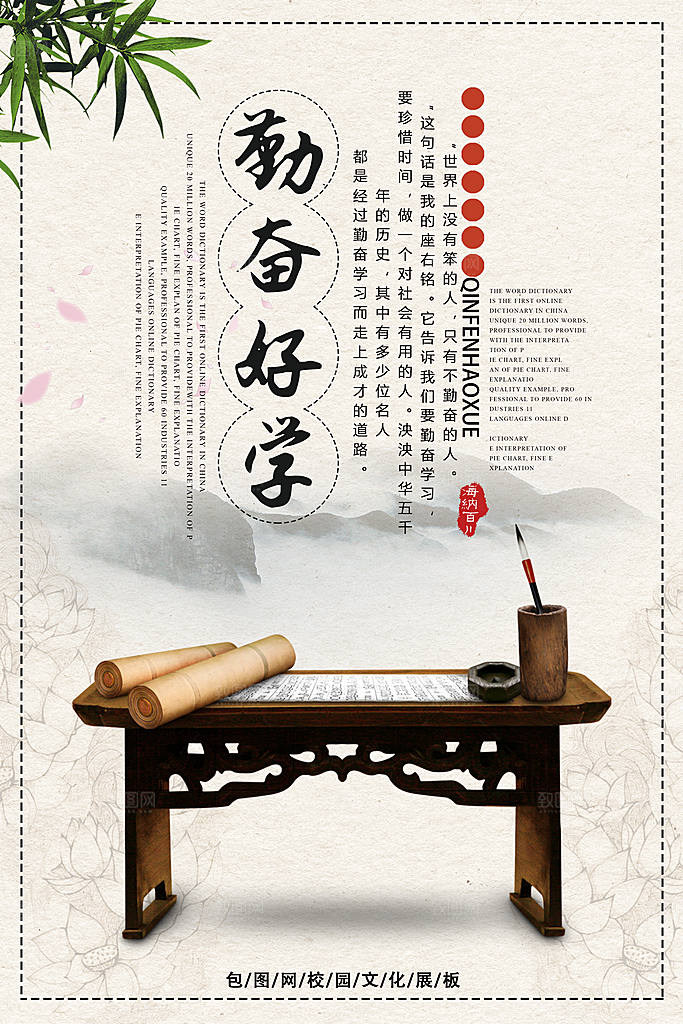 勤奋好学
QINFENHAOXUE
“世界上没有笨的人，只有不勤奋的人。
”这句话是我的座右铭。它告诉我们要勤奋学习，
要珍惜时间，做一个对社会有用的人。泱泱中华五千
年的历史，其中有多少位名人
都是经过勤奋学习而走上成才的道路。
海纳百川
THE WORD DICTIONARY
IS THE FIRST ONLINE
DICTIONARY IN CHINA
UNIQUE 20 MILLION WORDS,
PROFESSIONAL TO PROVIDE
WITH THE INTERPRETA
TION OF P
IE CHART, FINE EXPL
AN OF PIE CHART, FINE
EXPLANATIO
QUALITY EXAMPLE, PRO
FESSIONAL TO PROVIDE 60 IN
DUSTRIES 11
LANGUAGES ONLINE D
ICTIONARY
E INTERPRETATION OF
PIE CHART, FINE E
XPLANATION
THE WORD DICTIONARY IS THE FIRST ONLINE DICTIONARY IN CHINA
UNIQUE 20 MILLION WORDS, PROFESSIONAL TO PROVIDEWITH THE INTERPRETATION OF P
IE CHART, FINE EXPLAN OF PIE CHART, FINE EXPLANATIO
QUALITY EXAMPLE, PROFESSIONAL TO PROVIDE 60 INDUSTRIES 11
LANGUAGES ONLINE DICTIONARY
E INTERPRETATION OF PIE CHART, FINE EXPLANATION
包/图/网/校/园/文/化/展/板